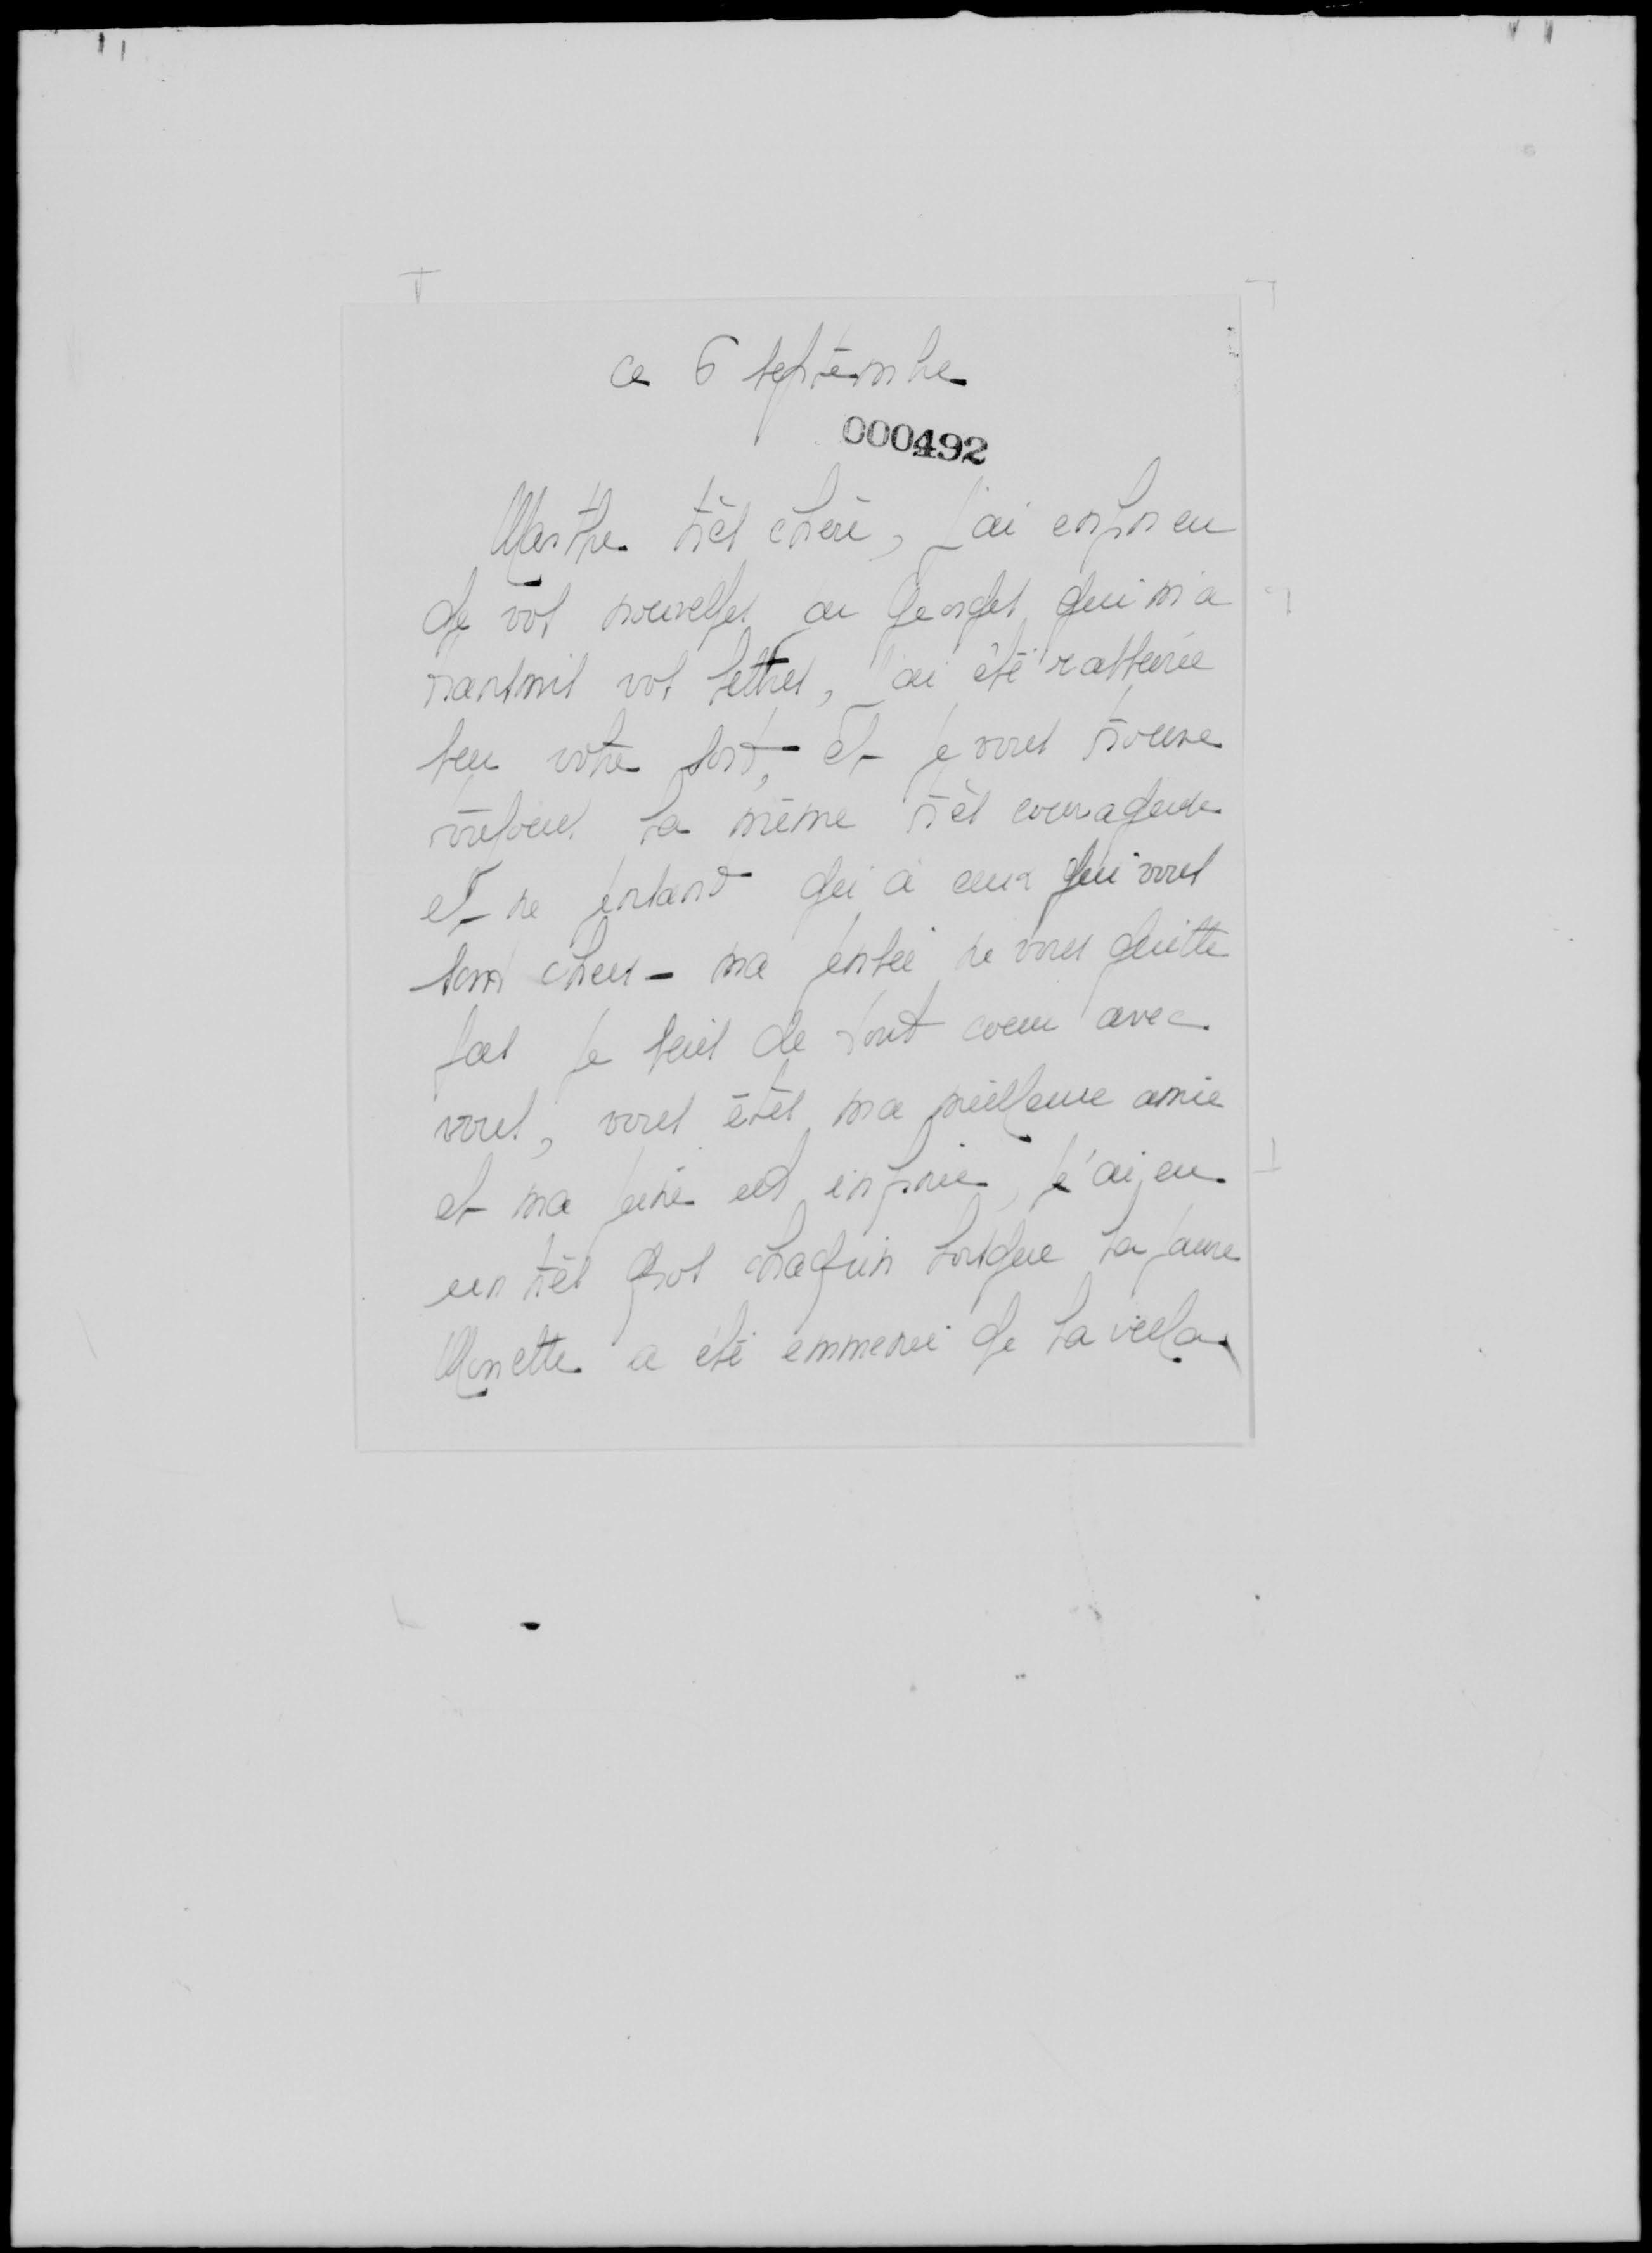 ce 6 septembre
000492
Marthe très chère, j'ai enfin eu
de vos nouvelles au Georges qui m'a
transmis vos lettres, j'ai été rassurée
sur votre sort, et je vous trouve
toujours la même très courageuse
et ne pensant qu'à ceux qui vous
sont chers - ma pensée ne vous quitte
pas je suis de tout coeur avec
vous, vous êtes ma meilleure amie
et ma peine est infinie, j'ai eu
un très gros chagrin lorsque la
Monette a été emmenée de la villa